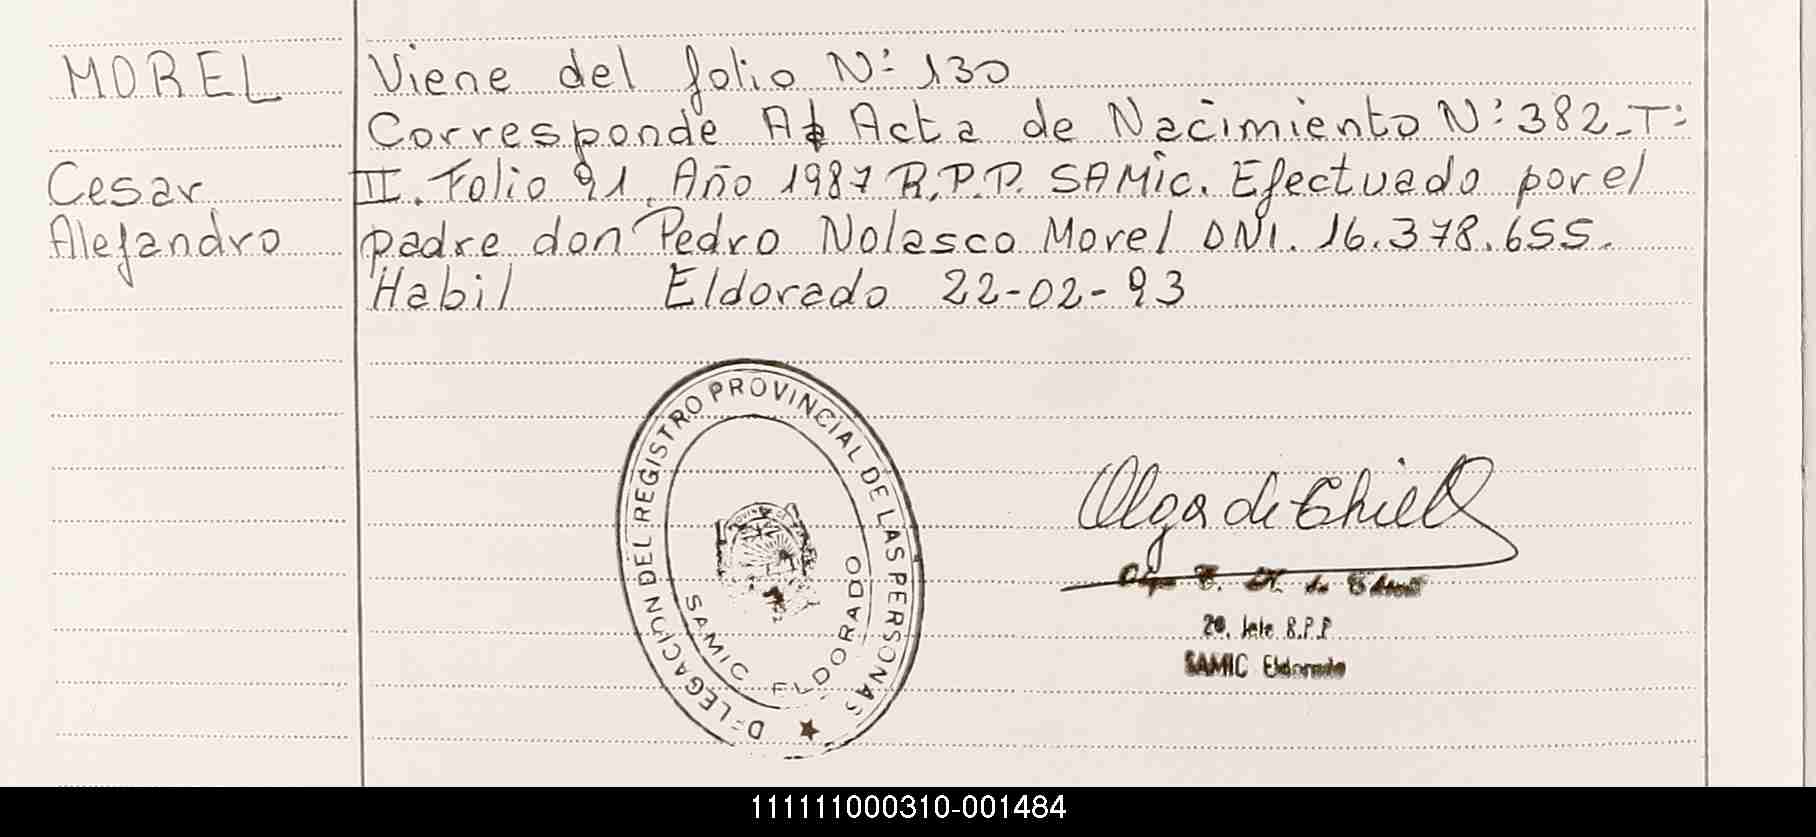 MOREL
Cesar
Alejandro
Viene del folio Nº 130
Corresponde Al Acta de Nacimiento Nº 382-Tº
II. Folio 91. Año 1987 R.P.P. SAMic. Efectuado por el
padre don Pedro Nolasco Morel DNI. 16.378.655.
Habil Eldorado 22-02-93
DELEGACION DEL REGISTRO PROVINCIAL DE LAS PERSONAS
SAMIC ELDORADO
Olga de
2º. Jefe R.P.P
SAMIC Eldorado
111111000310-001484